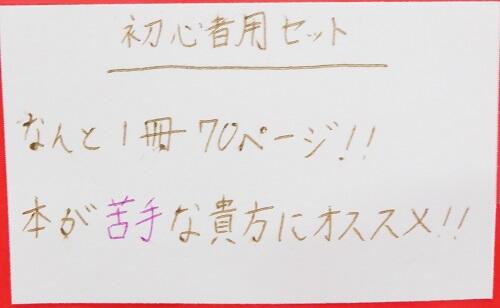 初心者用セット
なんと1冊70ページ!!
本が苦手な貴方にオススメ!!